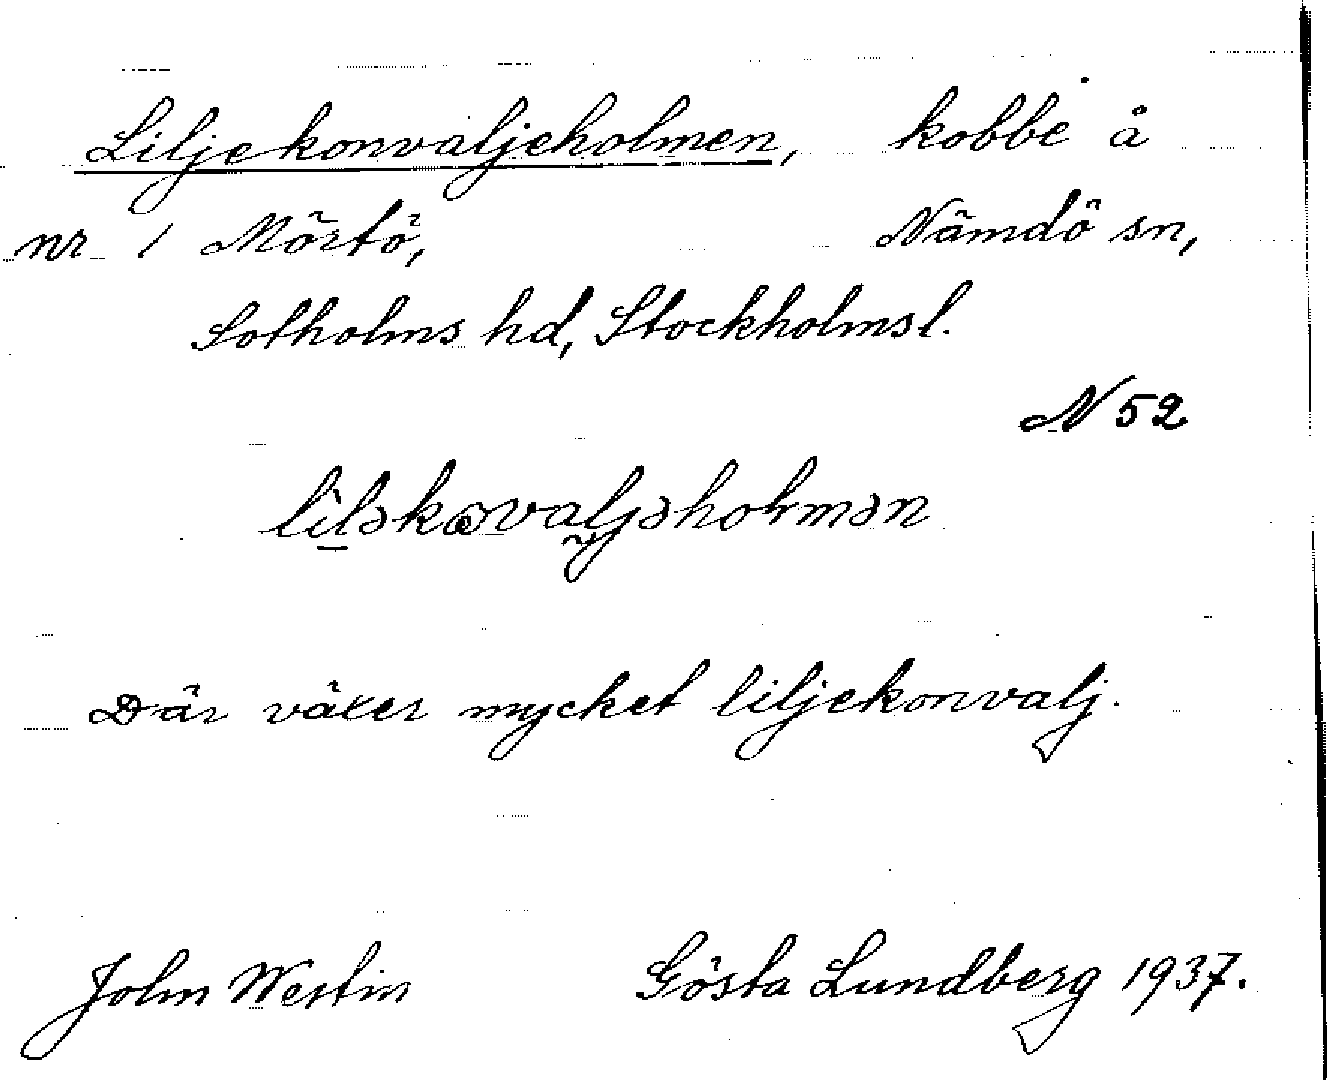 Liljekonvaljeholmen, kobbe å
nr 1 Mörtö, Nämdö sn,
Sotholms hd, Stockholmsl.
N 52
Där växer mycket liljekonvalj.
John Westin Gösta Lundberg 1937.